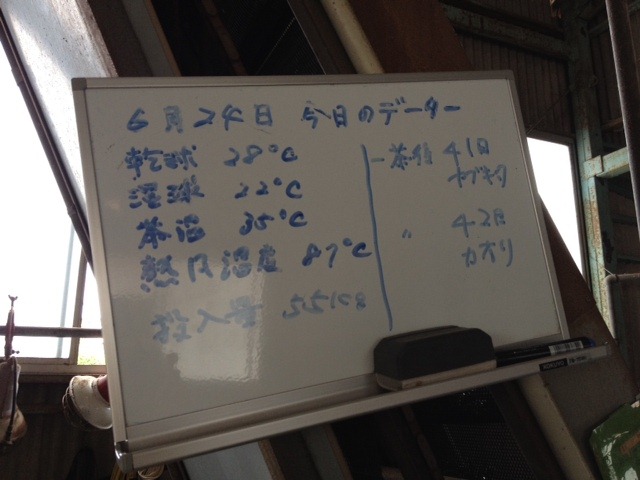 6月24日 今日のデーター
乾球 28℃
湿球 22℃
茶温 35℃
熱風温度 87℃
投入量 5510g
一茶後 41日
ヤブキタ
〃 42日
カオリ